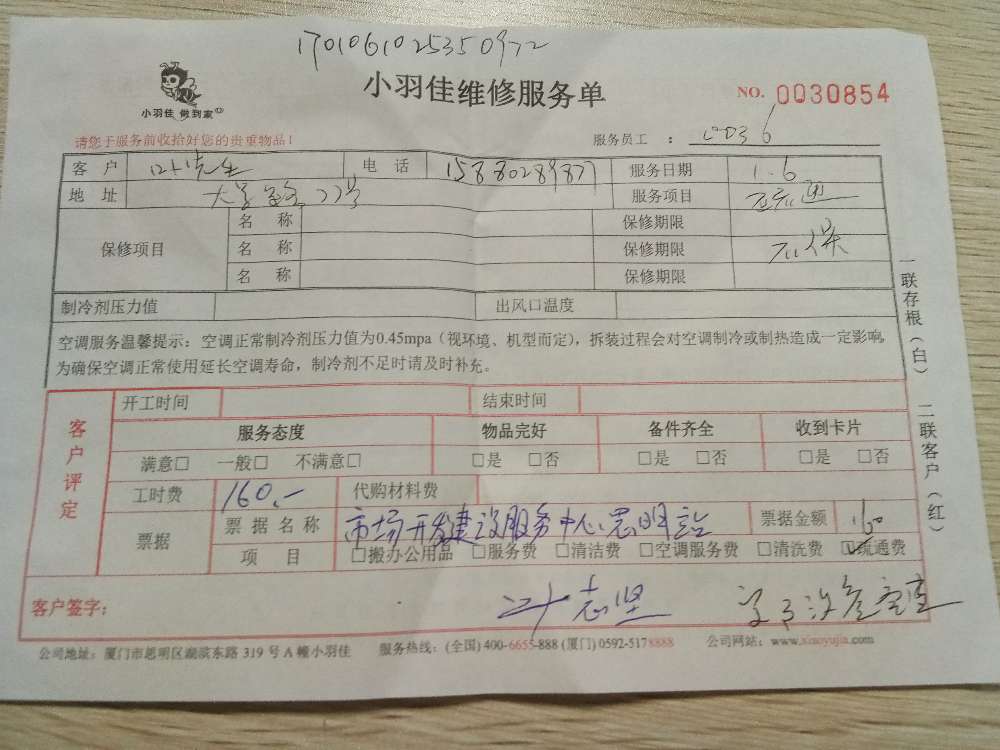 1701061025350972
小羽佳 做到家
小羽佳维修服务单
NO. 0030854
请您于服务前收拾好您的贵重物品！
服务员工 ： 0036
客 户 叶先生 电 话 15880289877 服务日期 1.6
地 址 服务项目
保修项目 名 称 保修期限
名 称 保修期限 不保
名 称 保修期限
制冷剂压力值 出风口温度
空调服务温馨提示：空调正常制冷剂压力值为0.45mpa（视环境、机型而定），拆装过程会对空调制冷或制热造成一定影响，
为确保空调正常使用延长空调寿命，制冷剂不足时请及时补充。
一联存根（白） 二联客户（红）
客户评定
开工时间 结束时间
服务态度 物品完好 备件齐全 收到卡片
满意□ 一般□ 不满意□ □是 □否 □是 □否 □是 □否
工时费 160.- 代购材料费
票据 票据名称 市场开发建设服务中心思明站 票据金额 160
项 目 □搬办公用品 □服务费 □清洁费 □空调服务费 □清洗费 ☑疏通费
客户签字： 叶志坚
公司地址：厦门市思明区湖滨东路 319 号 A 幢小羽佳 服务热线：(全国) 400-6655-888 (厦门) 0592-5178888 公司网站：www.xiaoyujia.com